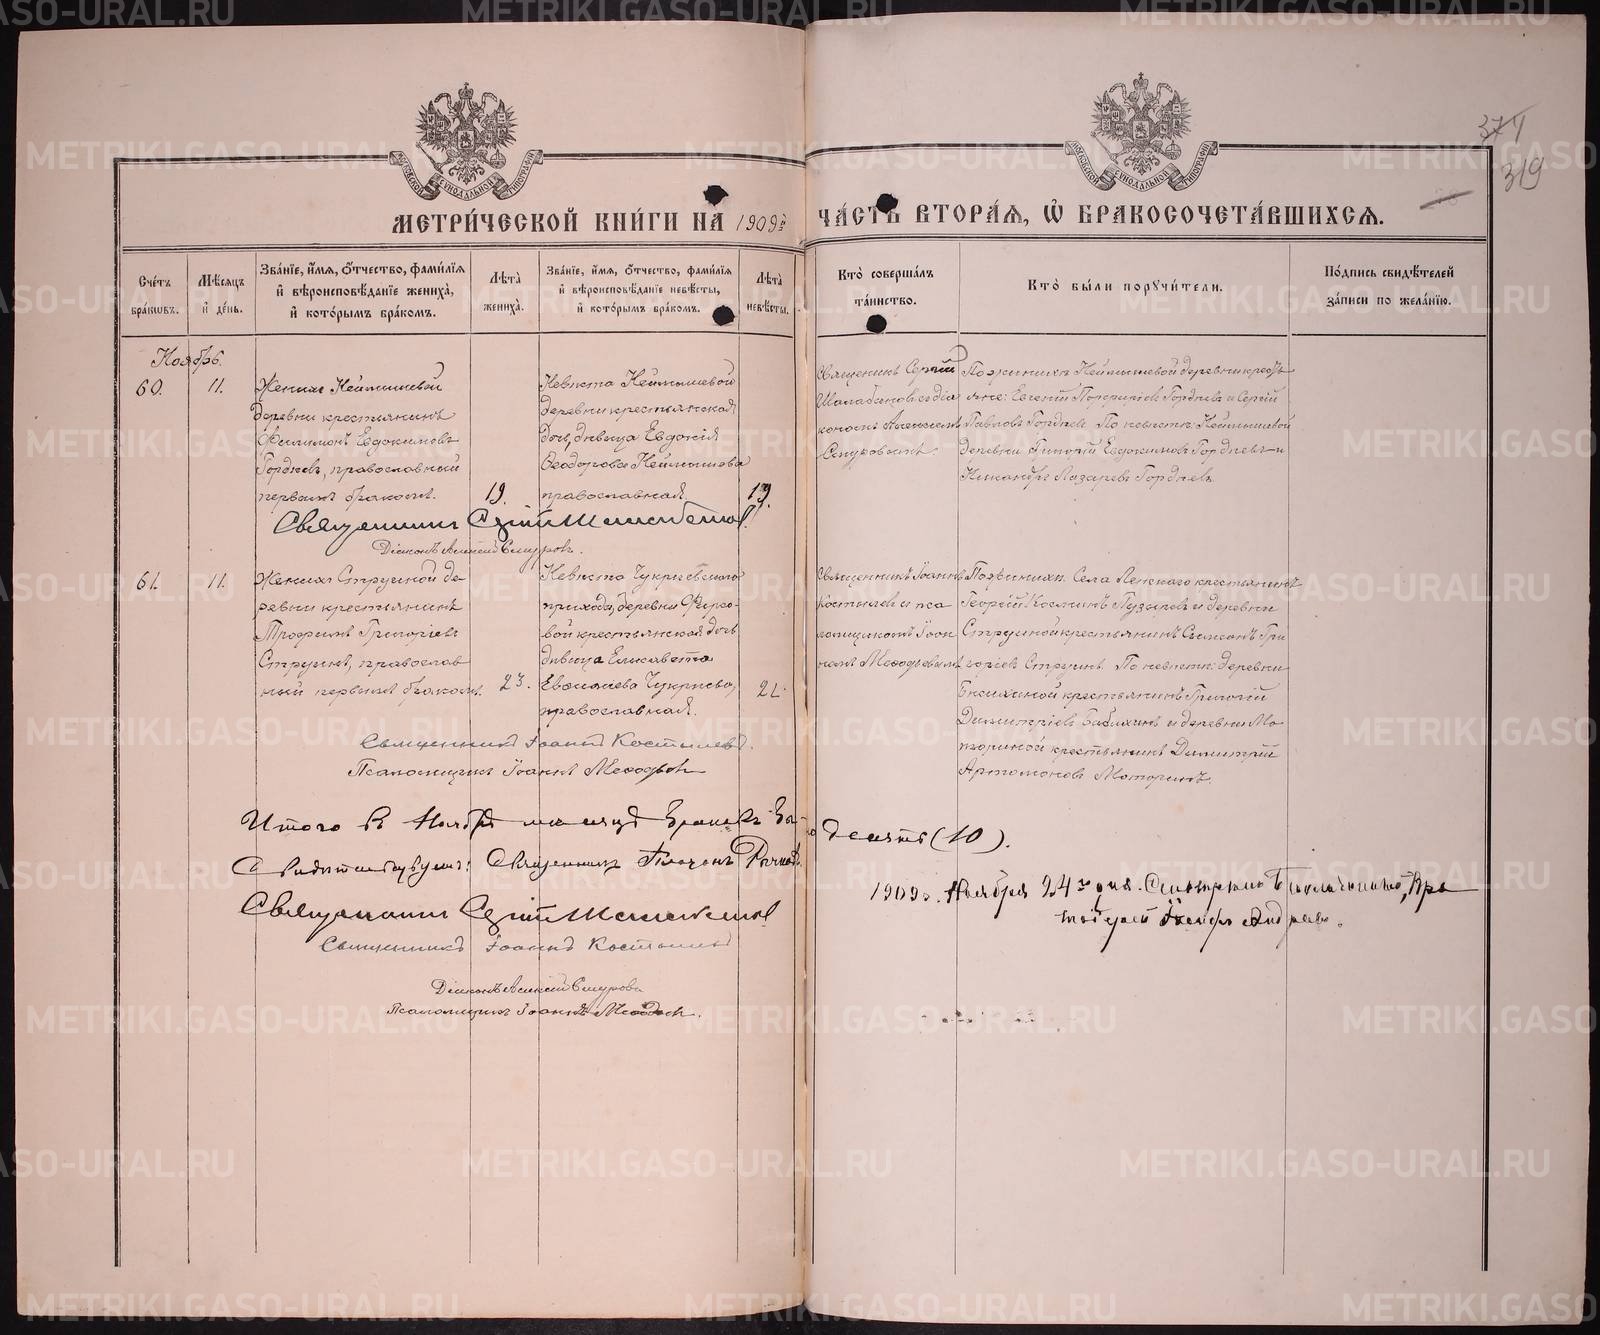 МЕТРИ́ЧЕСКОЙ КНИ́ГИ НА 1909й ЧА́СТЬ ВТОРА́Ѧ, Ѡ БРАКОСОЧЕТА́ВШИХСѦ.
374
319
Сче́тъ бра́кѡвъ.
Мѣ́сѧцъ и҆ де́нь.
Зва́нїе, и҆́мѧ, ѻ҆́тчество, фами́лїѧ и҆ вѣроисповѣ́данїе жениха̀, и҆ кото́рымъ бра́комъ.
Лѣ́та̀ жениха̀.
Зва́нїе, и҆́мѧ, ѻ҆́тчество, фами́лїѧ и҆ вѣроисповѣ́данїе невѣ́сты, и҆ кото́рымъ бра́комъ.
Лѣ́та̀ невѣ́сты.
Кто̀ соверша́лъ та́инство.
Кто̀ бы́ли порꙋчи́тели.
По́дпись свидѣ́телей за́писи по жела́нїю.
Ноябрь.
60.
11.
Женихъ Неймышевой
деревни крестьянинъ
Филимонъ Евдокимовъ
Гордѣевъ, православный
первымъ бракомъ.
19.
Невѣста Неймышевой
деревни крестьянская
дочь, дѣвица Евдокія
Ѳеодоровна Неймышева
православная.
19.
Священникъ Сергій
діа
кономъ Алексѣемъ
По женихѣ Неймышевой деревни крестья
яне: Евгеній Порфирьевъ Гордѣевъ и Сергій
Павловъ Гордѣевъ По невѣстѣ: Неймышевой
деревни Григорій Евдокимовъ Гордѣевъ и
Никандръ Лазаревъ Гордѣевъ.
Священникъ Сергій
Діаконъ Алексѣй
61.
11.
Женихъ Струиной де-
ревни крестьянинъ
Трофимъ Григорьевъ
Струинъ, православ
ный первымъ бракомъ.
23.
Невѣста Чукреевскаго
прихода, деревни Фирсо-
вой крестьянская дочь
дѣвица Елисавета
Чукреева,
православная.
21.
Священникъ Іоаннъ
Костылевъ и пса
ломщикомъ Іоан
номъ Меѳодьевымъ
По женихѣ. Села Ленскаго крестьянинъ
Георгій Косминъ Пузыревъ и деревни
Струиной крестьянинъ Симеонъ Гри
горьевъ Струинъ По невѣстѣ: деревни
Бабихиной крестьянинъ Григорій
Димитріевъ Бабихинъ и деревни Мо
ториной крестьянинъ Димитрій
Артомоновъ Моторинъ.
Священникъ Іоаннъ Костылевъ.
Псаломщикъ Іоаннъ Меѳодьевъ
Итого въ Ноябрѣ мѣсяцѣ браковъ было десять (10).
Свидѣтельствуемъ: Священникъ Платонъ
Священникъ Сергій
Священникъ Іоаннъ Костылевъ
Діаконъ Алексѣй
Псаломщикъ Іоаннъ Меѳодьевъ.
1909 г. Ноября 24го дня. Смотрѣлъ
METRIKI.GASO-URAL.RU